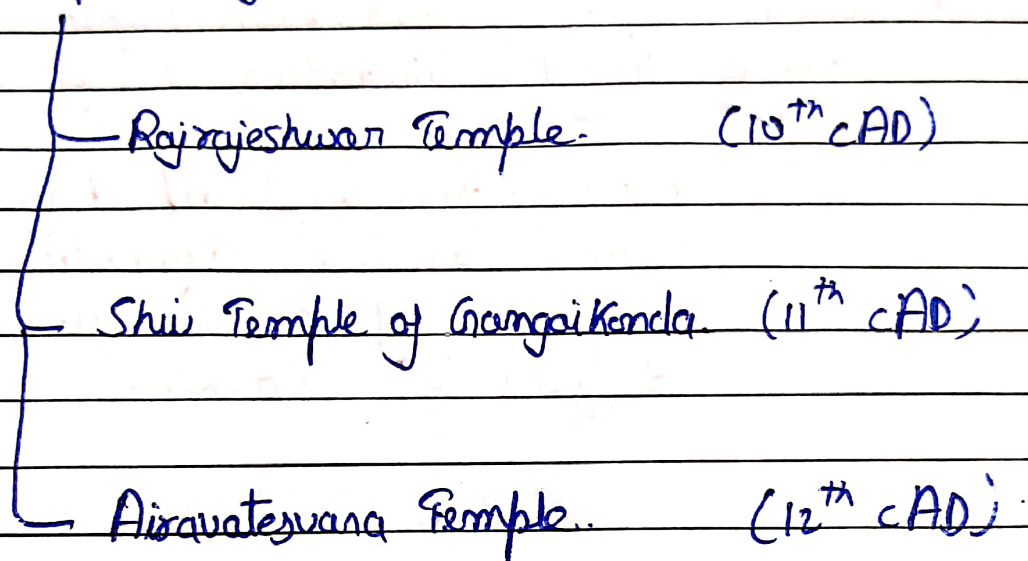 Rajrajeshwar Temple. (10th cAD)
Shiv Temple of GangaiKonda. (11th cAD)
Airavatesvara Temple.. (12th cAD).